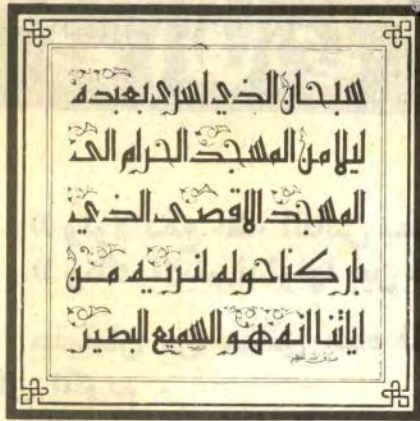 سبحان الذي اسرى بعبده
ليلا من المسجد الحرام الى
المسجد الاقصى الذي
باركنا حوله لنريه من
اياتنا انه هو السميع البصير
صدق الله العظيم